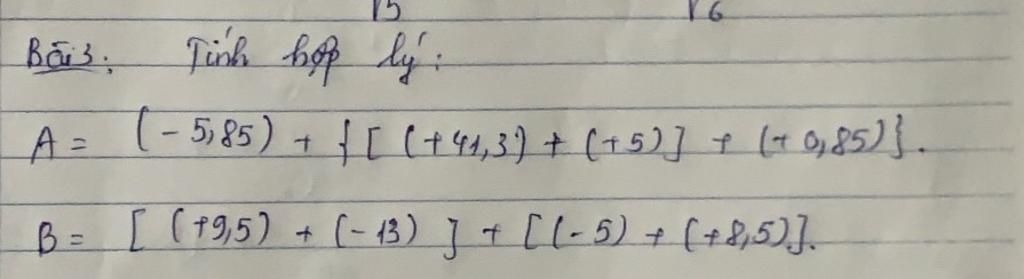 15 16
Bài 3: Tính hợp lý:
A = (-5,85) + {[(+41,3) + (+5)] + (+0,85)}.
B = [(+9,5) + (-13)] + [(-5) + (+8,5)].